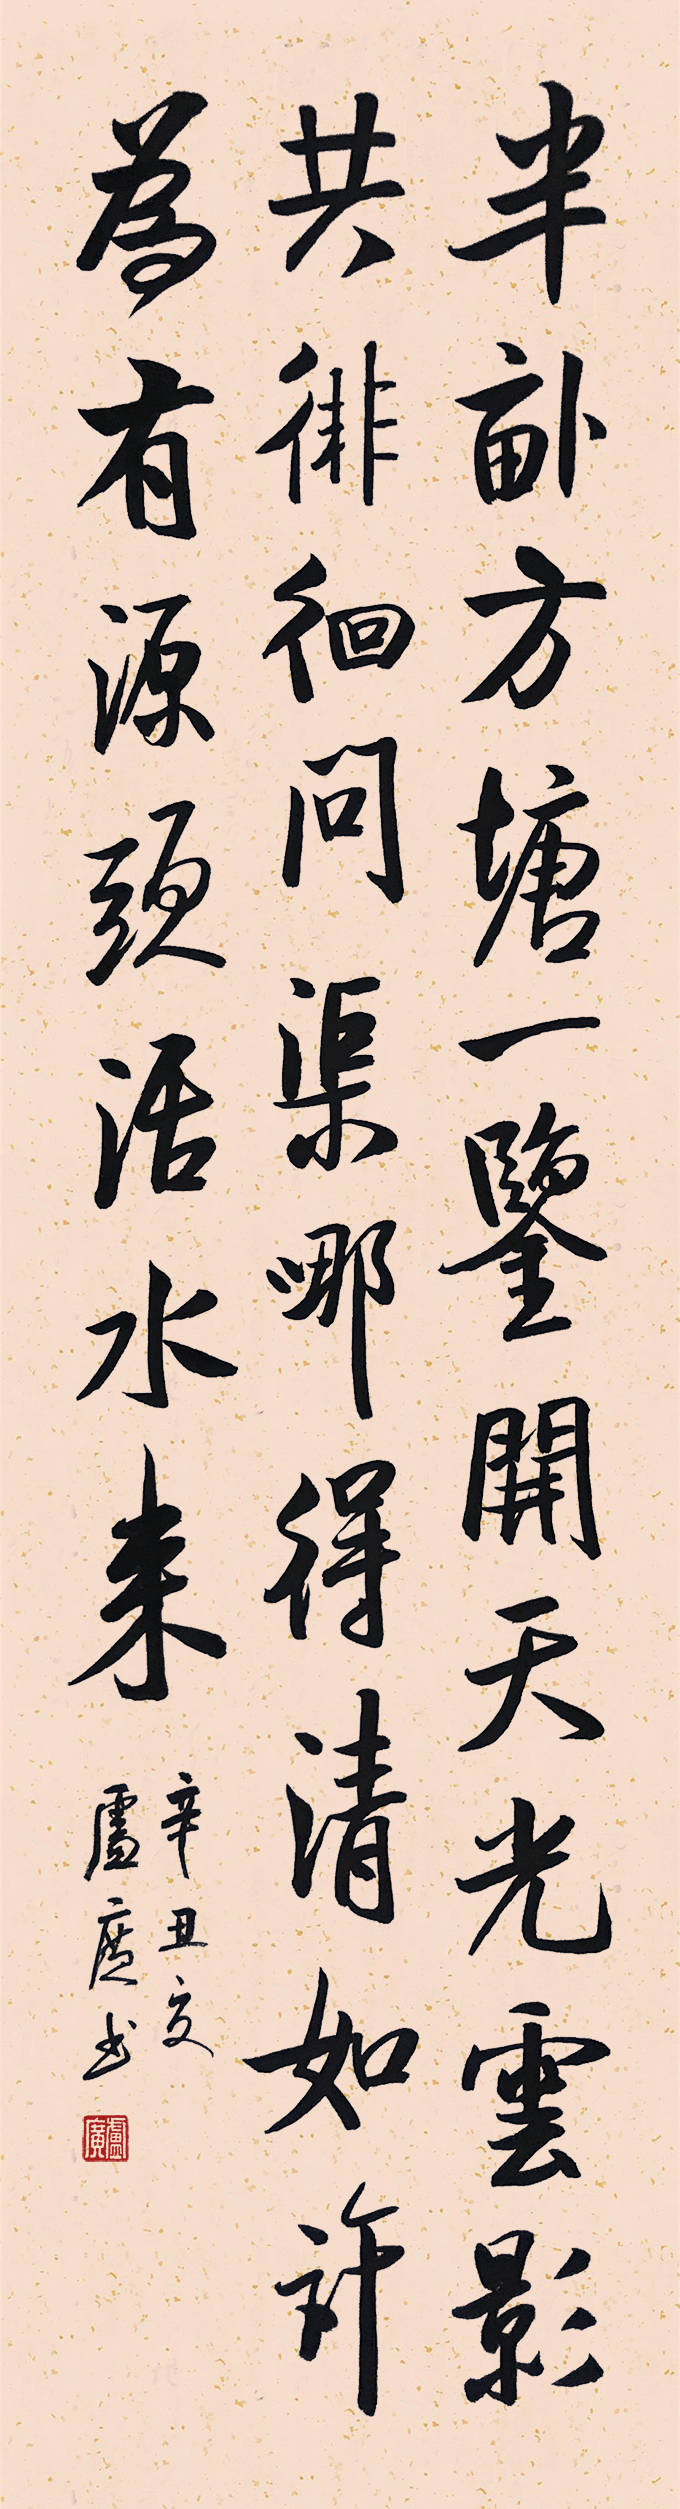 半畝方塘一鑒開天光雲影
共徘徊問渠哪得清如許
為有源頭活水来
辛丑夏
盧廣书
盧廣